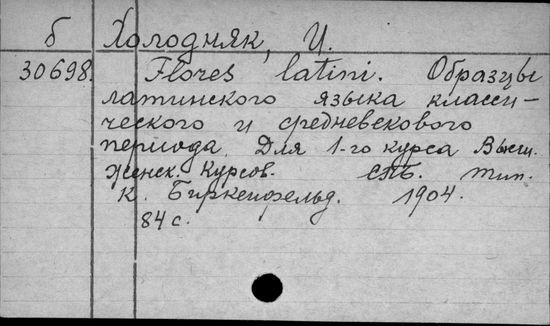 б Холодняк, И.
30698. Flores latini. Образцы
латинского языка класси-
ческого и средневекового
периода. Для 1-го курса Высш.
Женск. Курсов. СПБ. тип.
К. Биркенфельд. 1904.
84 с.